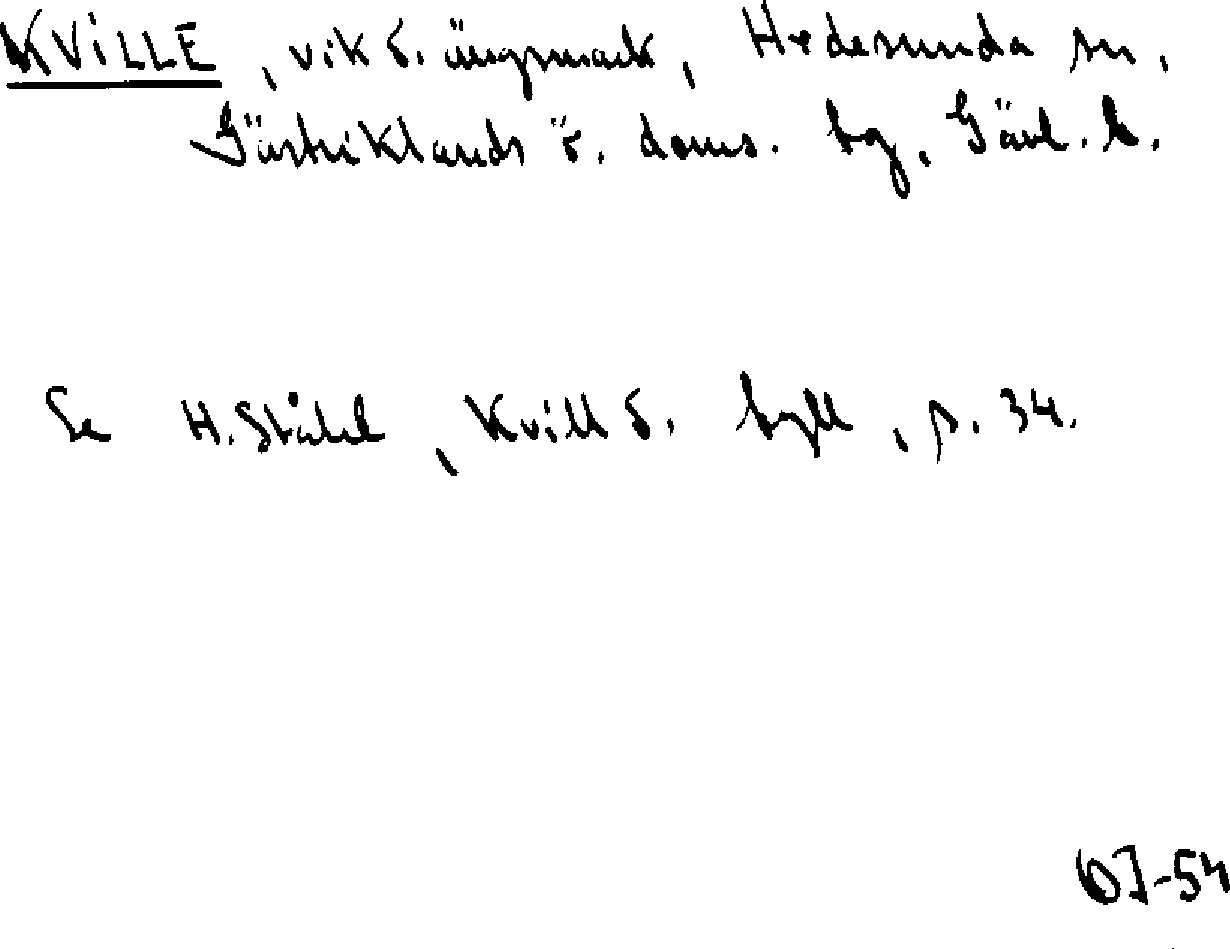 KVILLE, vik o. ängsmark, Hedesunda sn,
Gästriklands ö. doms. bg, Gävl. l.
Se H. Ståhl, Kvill o. byll, s. 34.
OJ-54